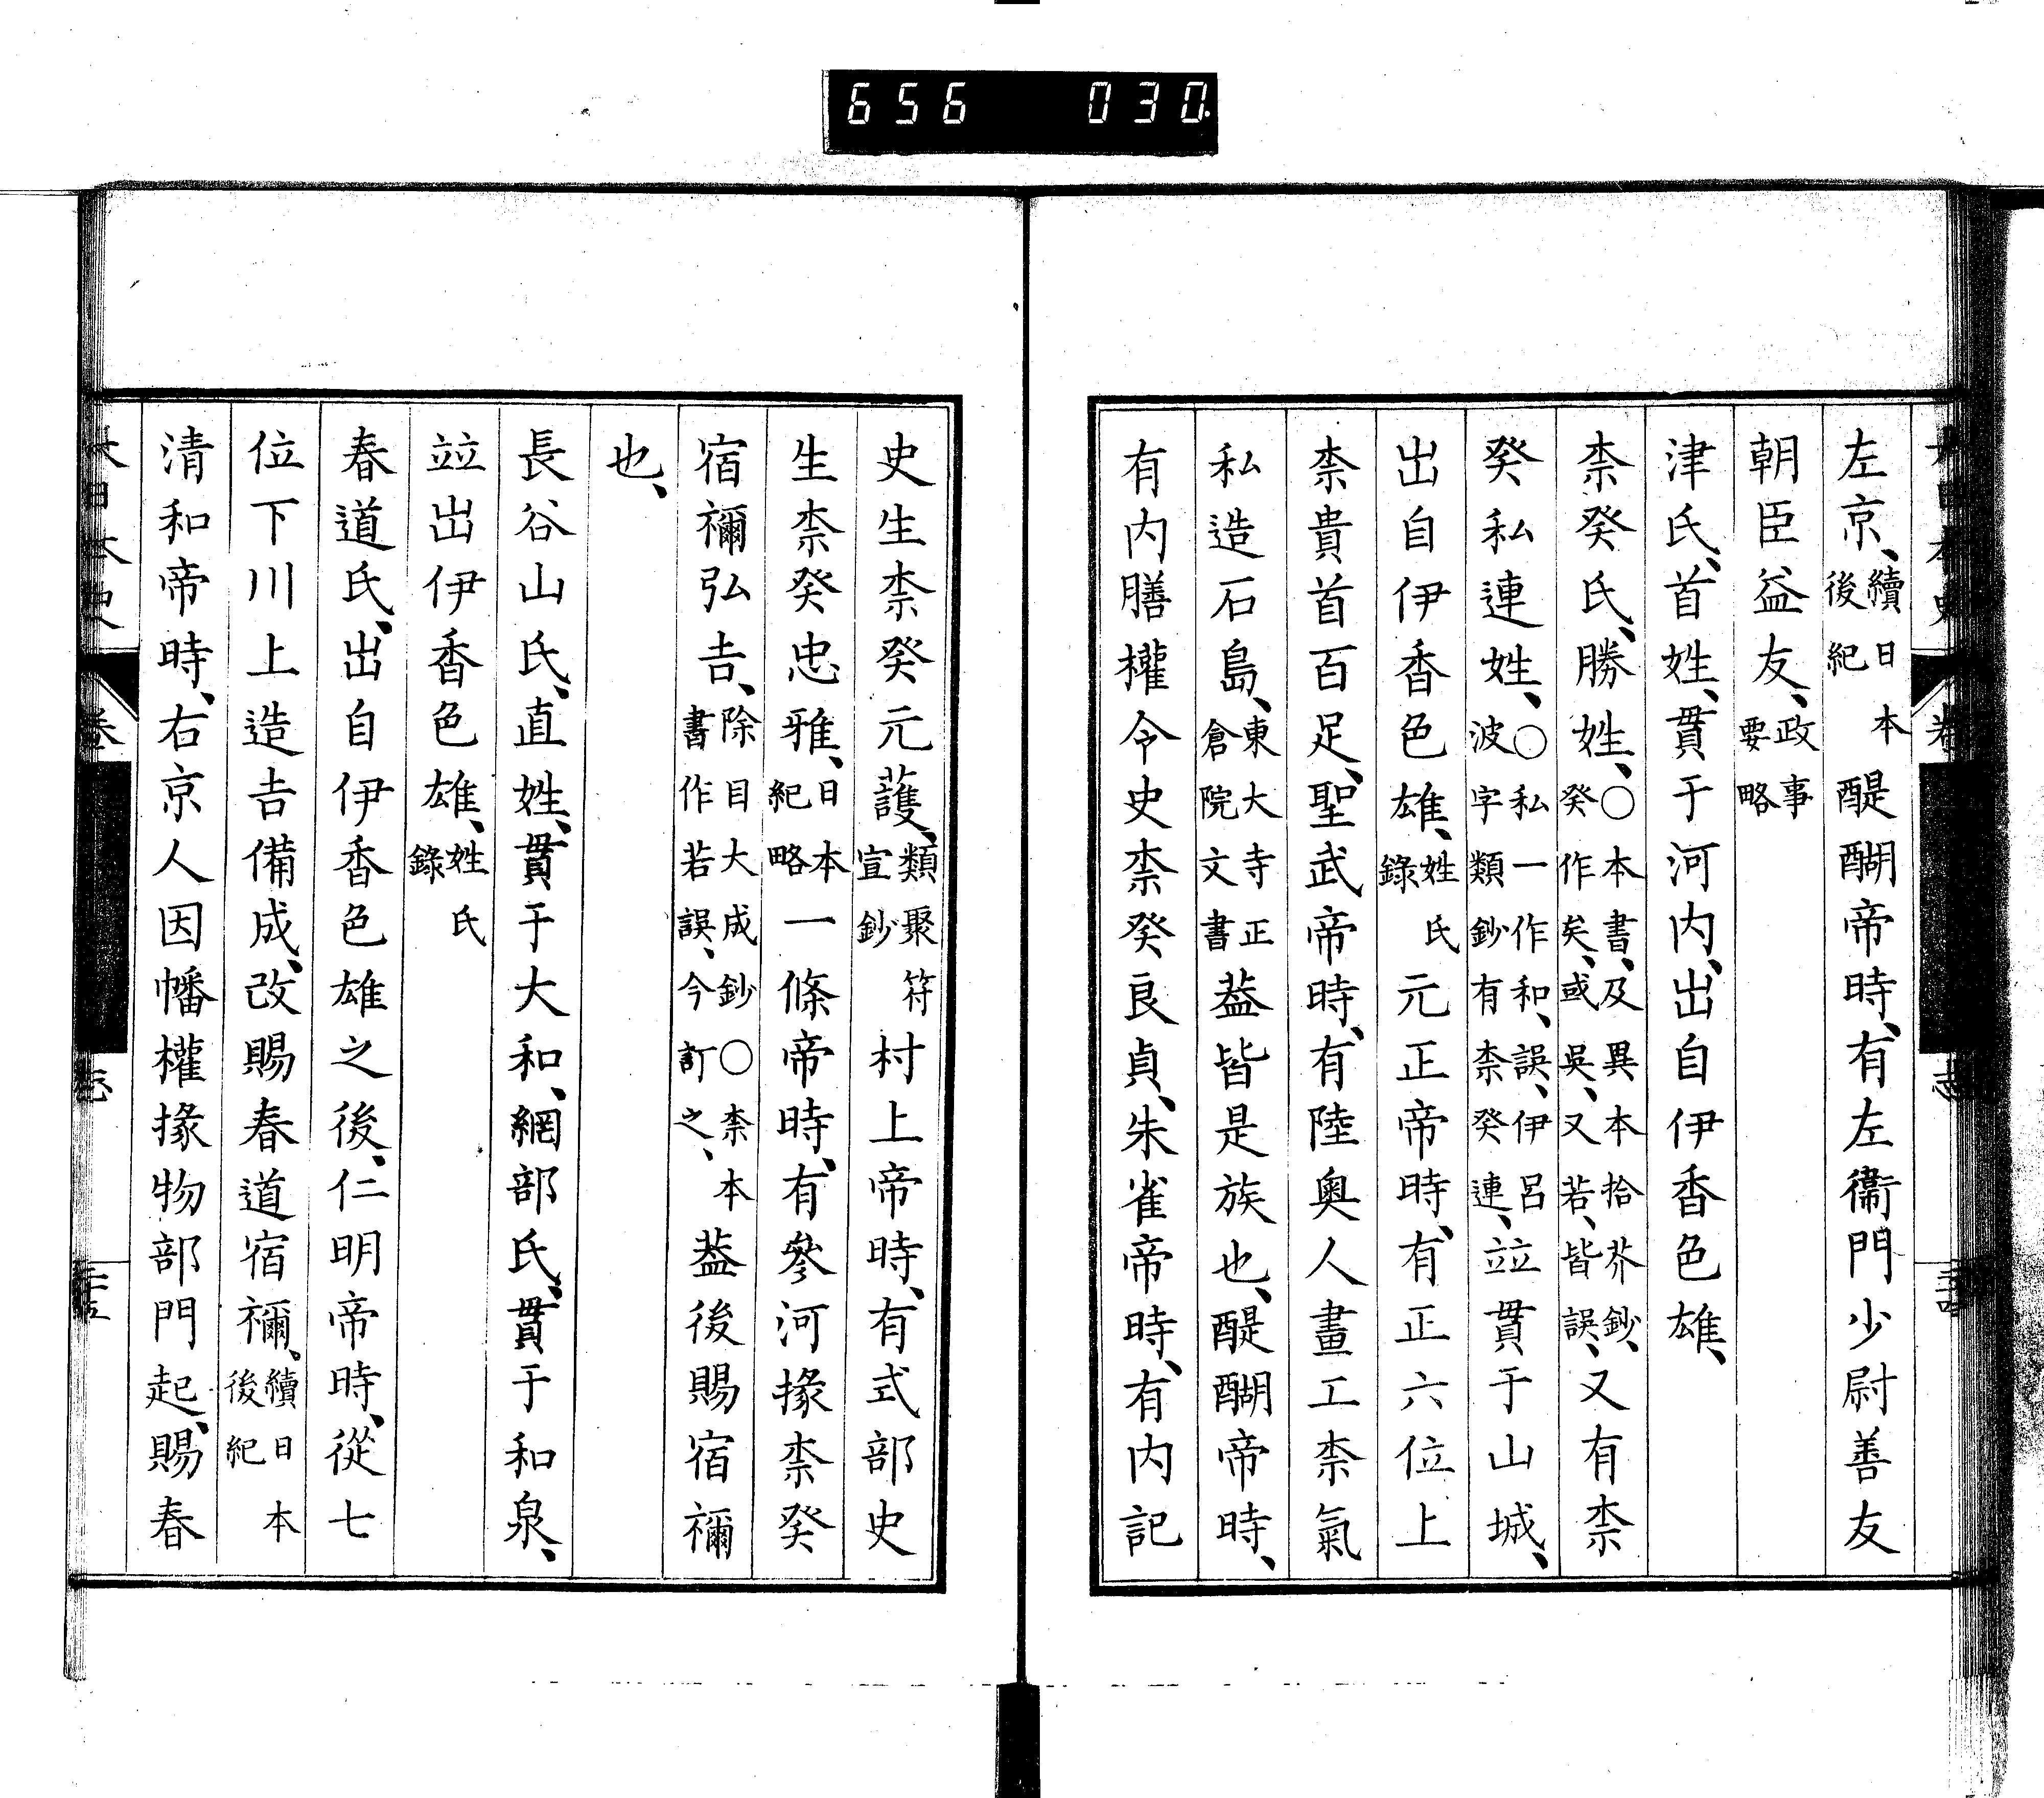 656 030
左京、續日本後紀醍醐帝時、有左衞門少尉善友
朝臣益友、政事要略
津氏、首姓、貫于河内、出自伊香色雄、
柰癸氏、勝姓、○本書、及異本拾芥鈔、癸作矣、或吳、又若、皆誤、又有柰
癸私連姓、○私一作和、誤、伊呂波字類鈔有柰癸連、竝貫于山城、
出自伊香色雄、姓氏錄元正帝時、有正六位上
柰貴首百足、聖武帝時、有陸奧人畫工柰氣
私造石島、東大寺正倉院文書葢皆是族也、醍醐帝時、
有内膳權令史柰癸良貞、朱雀帝時、有内記
史生柰癸元護、類聚符宣鈔村上帝時、有式部史
生柰癸忠雅、日本紀略一條帝時、有參河掾柰癸
宿禰弘吉、除目大成鈔○柰本書作若誤、今訂之、葢後賜宿禰
也、
長谷山氏、直姓、貫于大和、網部氏、貫于和泉、
竝出伊香色雄、姓氏錄
春道氏、出自伊香色雄之後、仁明帝時、從七
位下川上造吉備成、改賜春道宿禰。續日本後紀
清和帝時、右京人因幡權掾物部門起、賜春
大日本史 卷 志 二十五